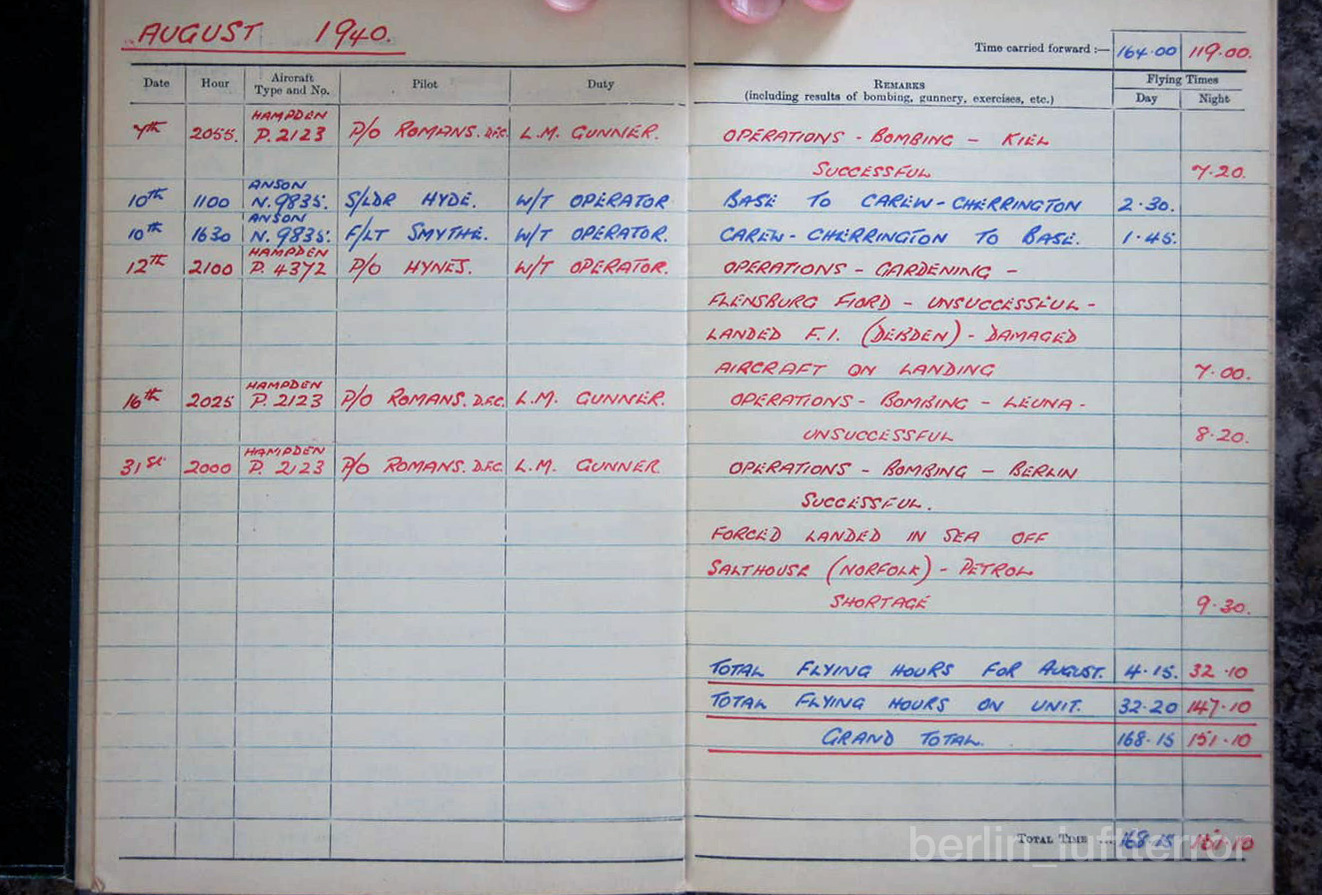 AUGUST 1940.
Time carried forward :— 164·00 119·00.
Date Hour Aircraft Type and No. Pilot Duty REMARKS (including results of bombing, gunnery, exercises, etc.) Flying Times Day Night
7th 2055. HAMPDEN P. 2123 P/O ROMANS. D.F.C. L.M. GUNNER. OPERATIONS - BOMBING - KIEL
SUCCESSFUL 7·20.
10th 1100 ANSON N. 9835. S/LDR HYDE. W/T OPERATOR BASE TO CAREW-CHERRINGTON 2·30.
10th 1630 ANSON N. 9835. F/LT SMYTHE. W/T OPERATOR. CAREW-CHERRINGTON TO BASE. 1·45.
12th 2100 HAMPDEN P. 4372 P/O HYNES. W/T OPERATOR. OPERATIONS - GARDENING -
FLENSBURG FIORD - UNSUCCESSFUL -
LANDED F.I. (DEBDEN) - DAMAGED
AIRCRAFT ON LANDING 7·00.
16th 2025 HAMPDEN P. 2123 P/O ROMANS. D.F.C. L.M. GUNNER. OPERATIONS - BOMBING - LEUNA -
UNSUCCESSFUL 8·20.
31st 2000 HAMPDEN P. 2123 P/O ROMANS. D.F.C. L.M. GUNNER OPERATIONS - BOMBING - BERLIN
SUCCESSFUL.
FORCED LANDED IN SEA OFF
SALTHOUSE (NORFOLK) - PETROL
SHORTAGE 9·30.
TOTAL FLYING HOURS FOR AUGUST. 4·15. 32·10
TOTAL FLYING HOURS ON UNIT. 32·20 147·10
GRAND TOTAL. 168·15 151·10
TOTAL TIME 168·15 151·10
berlin_luftterror